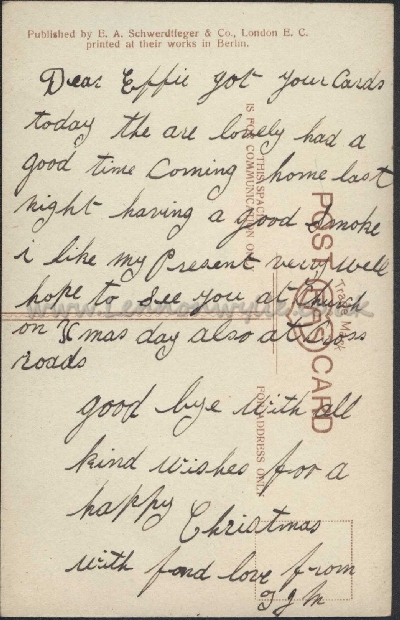 Published by E. A. Schwerdtfeger & Co., London E. C.
printed at their works in Berlin.
Dear Effie got your Cards
today the are lovely had a
good time Coming home last
night having a good Smoke
i like my Present very well
hope to See you at Church
on Xmas day also at Cross
roads
good bye with all
kind wishes for a
happy Christmas
with fond love from
T J M
POST CARD
Trade Mark
THIS SPACE
IS FOR COMMUNICATION ONLY
FOR ADDRESS ONLY